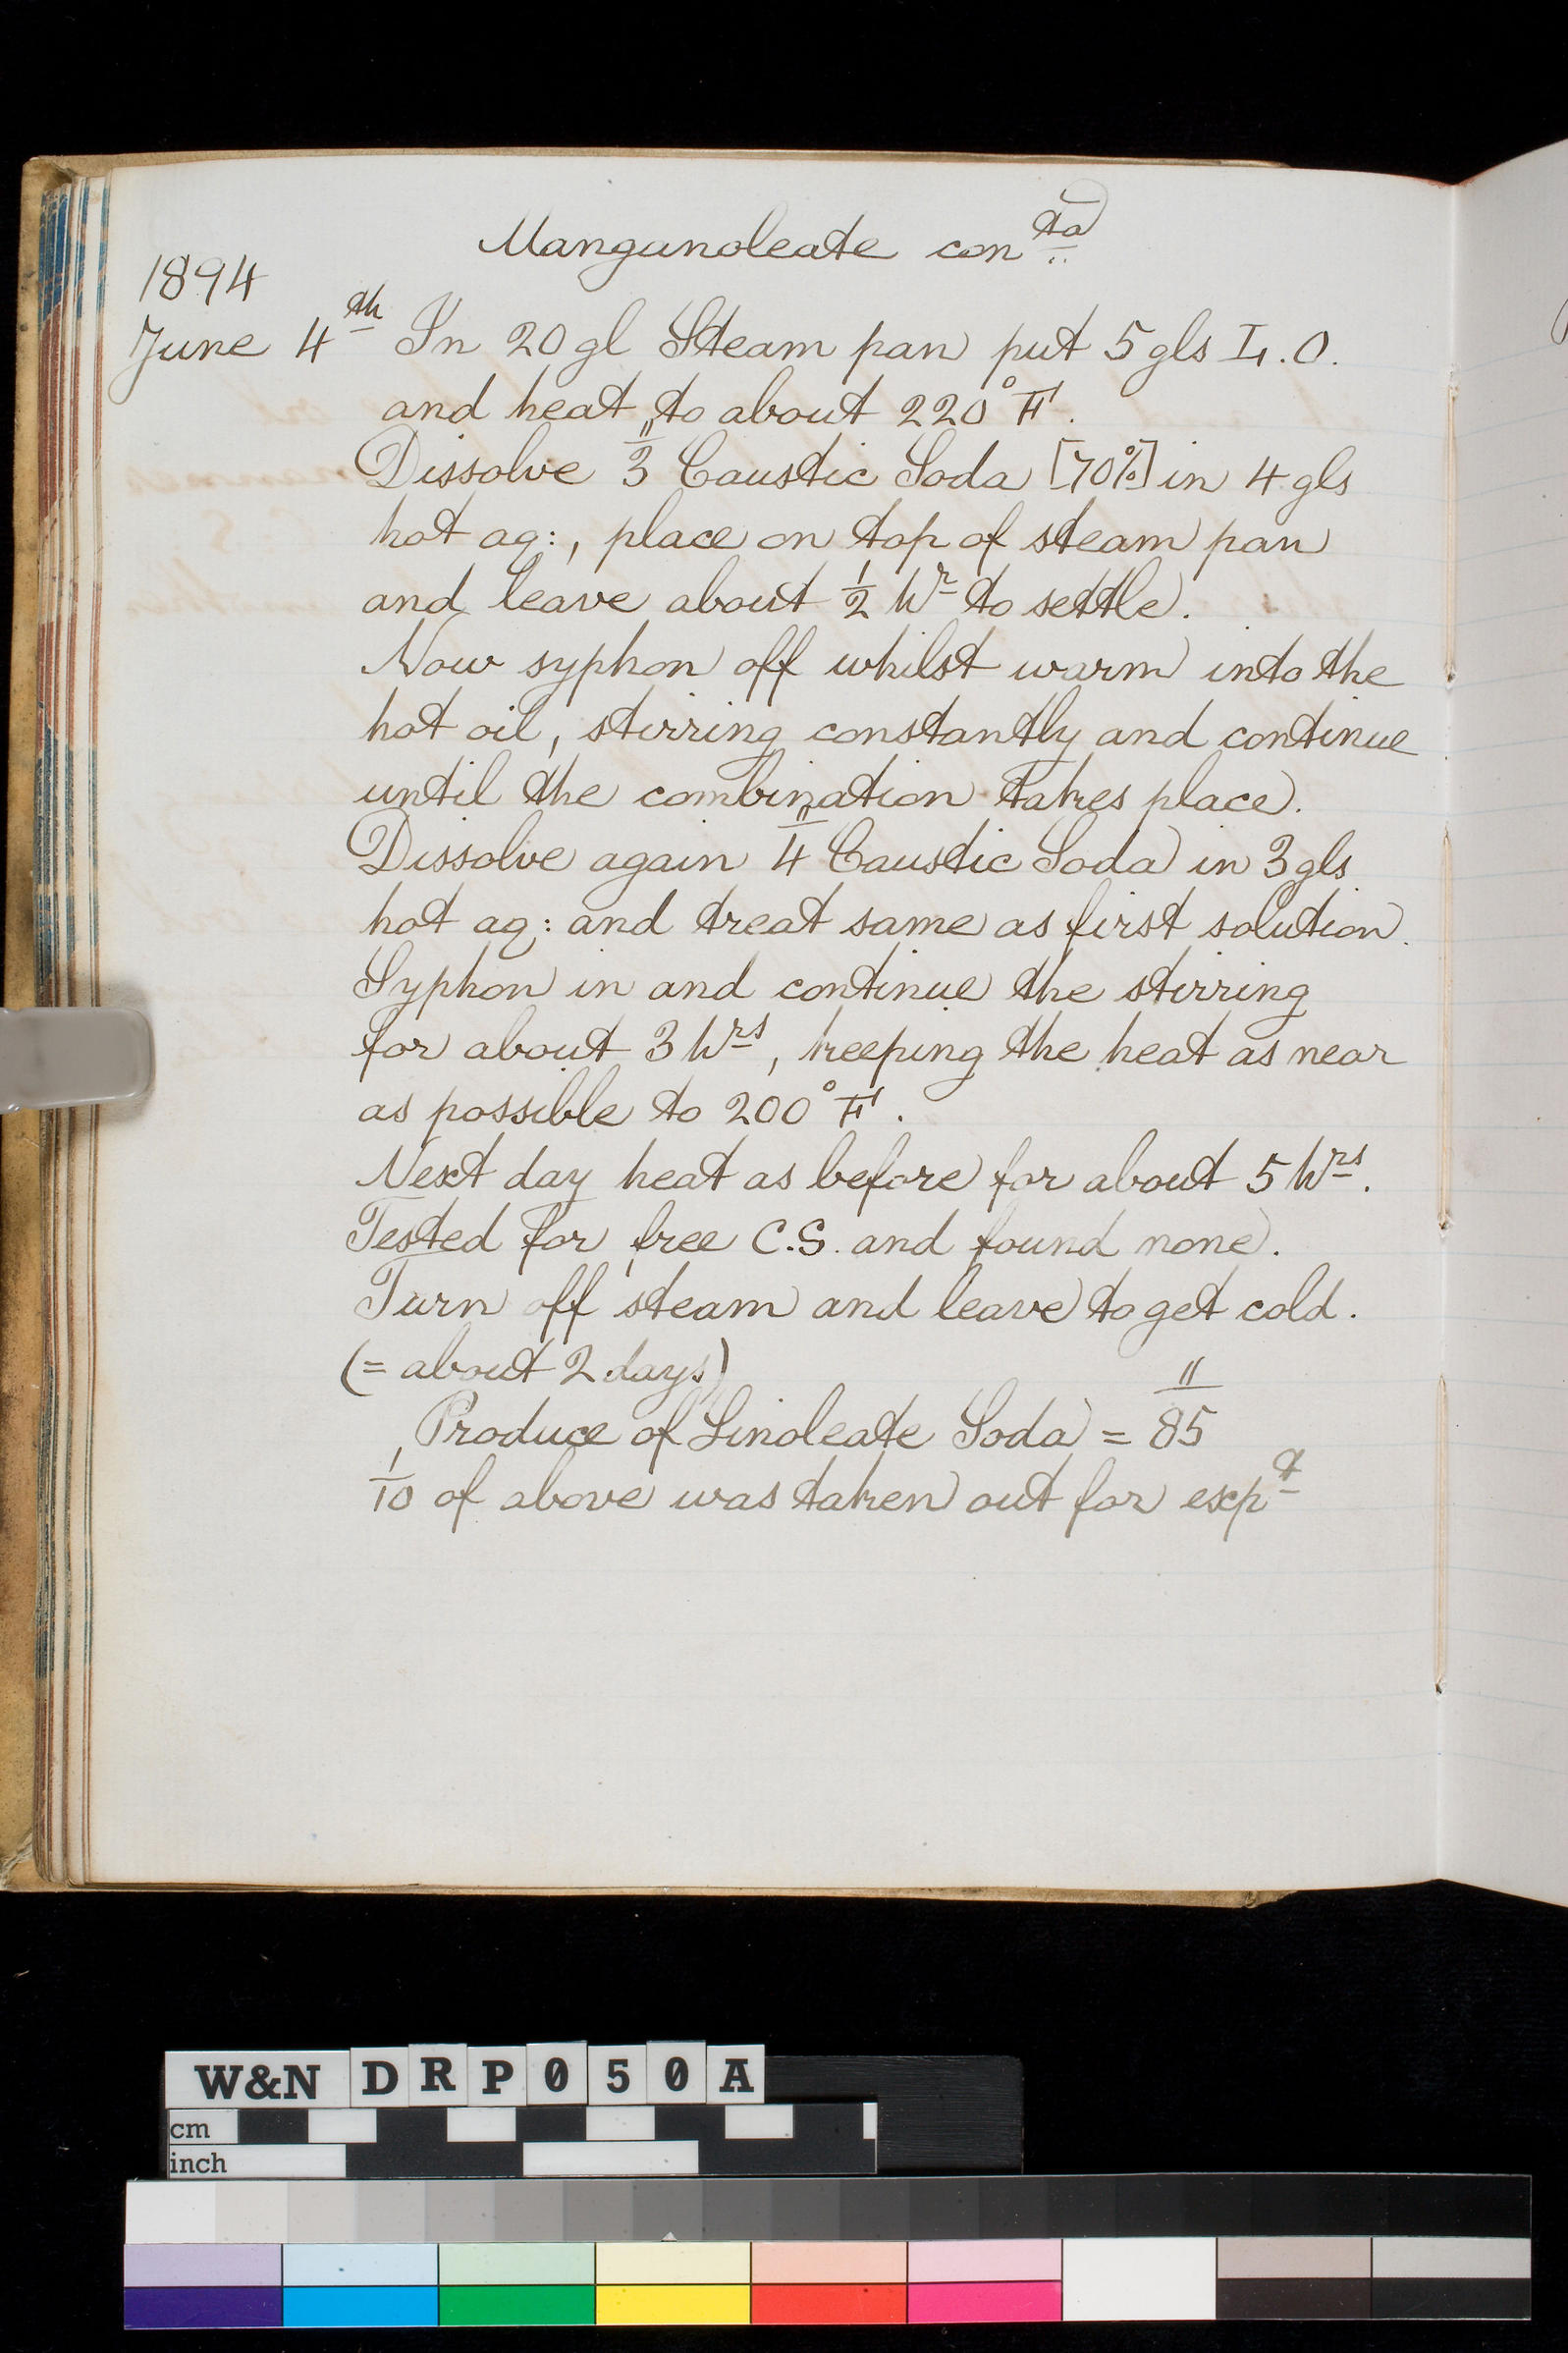 Manganoleate con td
1894
June 4th In 20 gl Steam pan put 5 gls L.O.
and heat to about 220°F.
Dissolve 3" Caustic Soda [70%] in 4 gls
hot aq:, place on top of steam pan
and leave about 1/2 hr to settle.
Now syphon off whilst warm into the
hot oil, stirring constantly and continue
until the combination takes place.
Dissolve again 4" Caustic Soda in 3 gls
hot aq: and treat same as first solution.
Syphon in and continue the stirring
for about 3 hrs, keeping the heat as near
as possible to 200°F.
Next day heat as before for about 5 hrs.
Tested for free C.S. and found none.
Turn off steam and leave to get cold.
(= about 2 days)
Produce of Linoleate Soda = 85"
1/10 of above was taken out for expt
W&N DRP050A
cm
inch